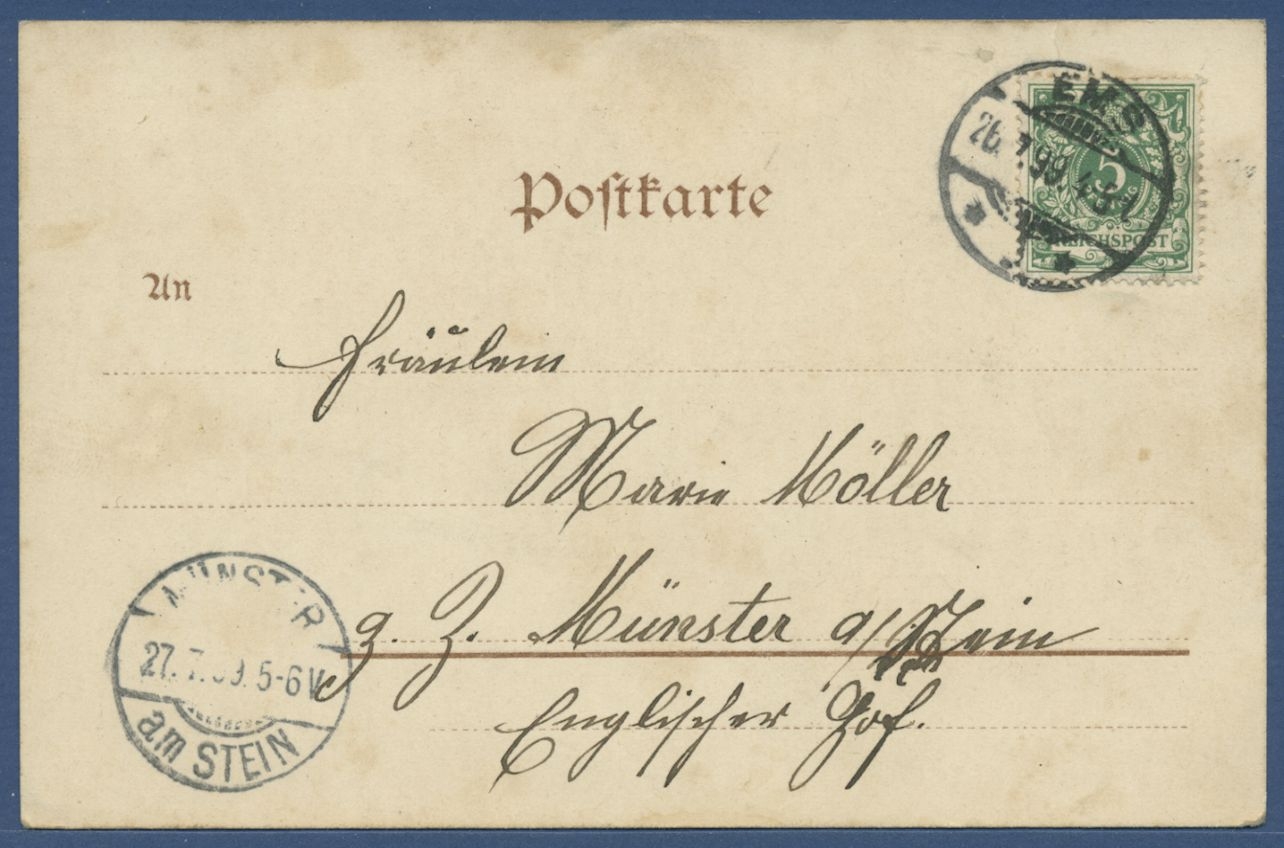 Postkarte
EMS
26.7.99.4-5N.
5
REICHSPOST
An
Fräulein
Marie Möller
z. Z. Münster a/Stein
Englischer Hof.
MÜNSTER
27.7.99.5-6V.
am STEIN